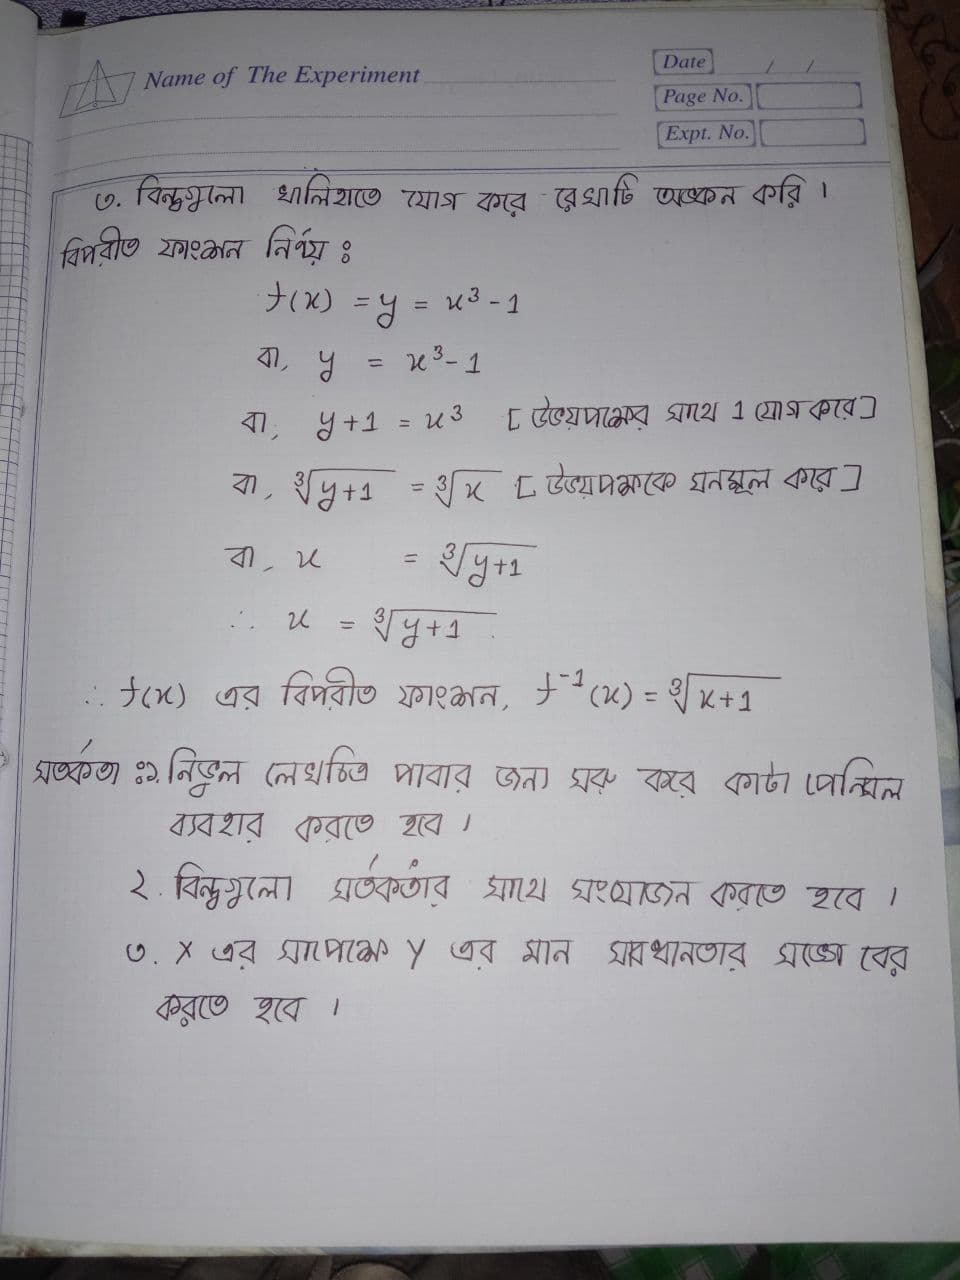 Name of The Experiment
Date / /
Page No.
Expt. No.
৩. বিন্দুগুলো খালিহাতে যোগ করে রেখাটি অঙ্কন করি ।
বিপরীত ফাংশন নির্ণয় ঃ
f(x) = y = x³ - 1
বা, y = x³ - 1
বা, y+1 = x³ [ উভয়পক্ষের সাথে 1 যোগ করে ]
বা, ∛(y+1) = ∛x [ উভয়পক্ষকে ঘনমূল করে ]
বা, x = ∛(y+1)
∴ x = ∛(y+1)
∴ f(x) এর বিপরীত ফাংশন, f⁻¹(x) = ∛(x+1)
সতর্কতা ঃ ১. নির্ভুল লেখচিত্র পাবার জন্য সরু করে কাটা পেন্সিল
ব্যবহার করতে হবে ।
২. বিন্দুগুলো সর্তকর্তার সাথে সংযোজন করতে হবে ।
৩. X এর সাপেক্ষে Y এর মান সাবধানতার সঙ্গে বের
করতে হবে ।